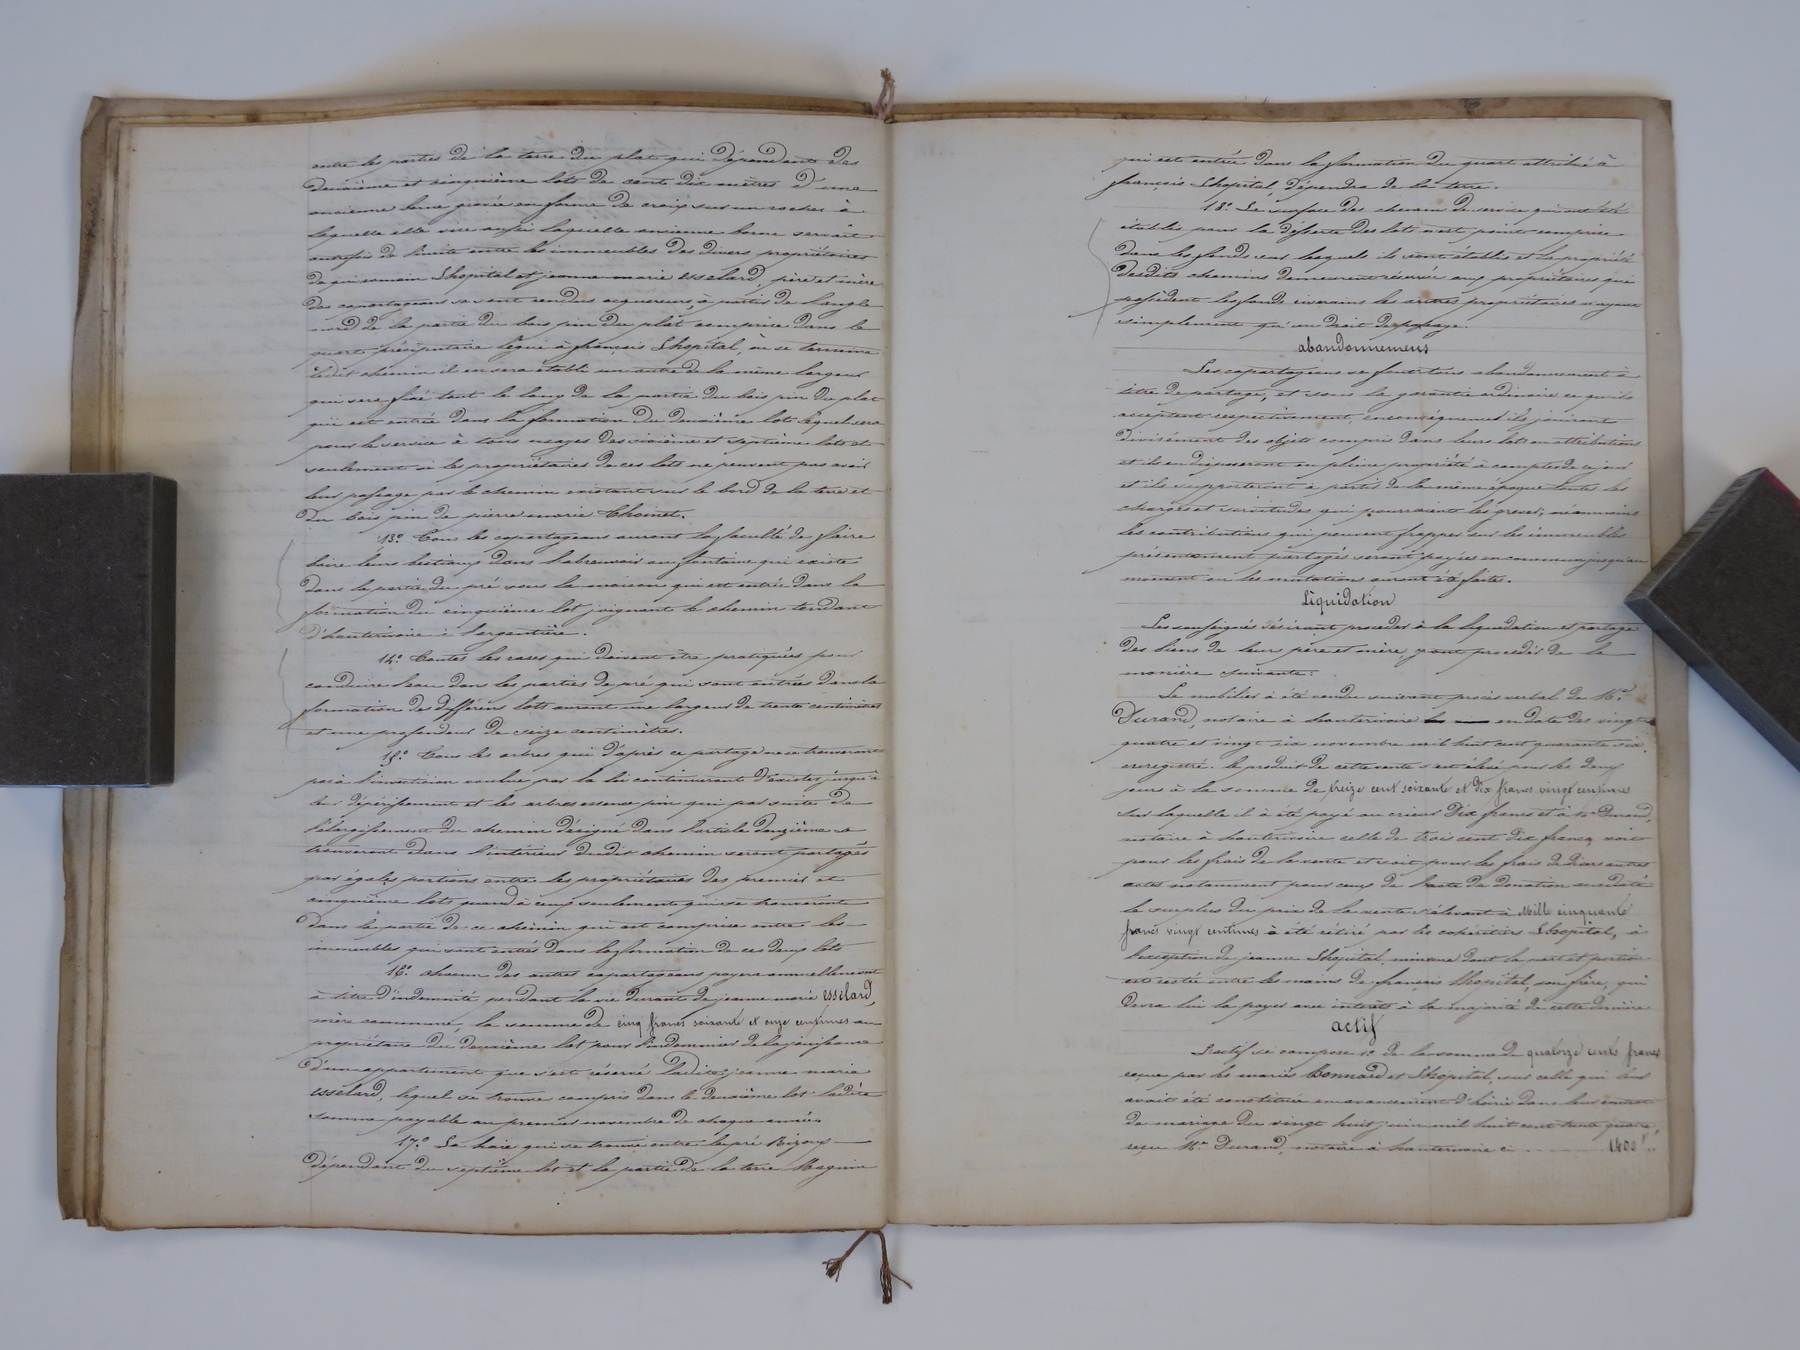 entre les parties de la terre du plat qui dépendent des
deuxième et cinquième lots de cent dix mètres d'une
ancienne borne gravée en forme de croix sur un rocher à
laquelle elle vise aussi laquelle ancienne borne servait
autrefois de limite entre les immeubles des divers propriétaires
de qui romain Lhopital et jeanne marie esselard, père et mère
des copartageans se sont rendus acquereurs, à partir de l'angle
nord de la partie du bois pin du plat comprise dans le
quart préciputaire légué à françois Lhopital, où se termine
ledit chemin il en sera établi un autre de la même largeur
qui sera fixé tout le long de la partie du bois pin du plat
qui est entrée dans la formation du deuxième lot lequel sera
pour le service à tous usages des sixième et septième lots et
seulement si les propriétaires de ces lots ne peuvent pas avoir
leur passage par le chemin existant sur le bord de la terre et
du bois pin de pierre marie Choinet.
13.º Tous les copartageans auront la faculté de faire
boire leurs bestiaux dans l'abreuvoir ou fontaine qui existe
dans la partie du pré sous la maison qui est entrée dans la
formation du cinquième lot joignant le chemin tendant
d'hauterivoire à l'argentière.
14.º Toutes les rases qui doivent être pratiquées pour
conduire l'eau dans les parties de pré qui sont entrées dans la
formation de différens lots auront une largeur de trente centimètres
et une profondeur de seize centimètres.
15.º Tous les arbres qui d'après ce partage ne se trouveront
pas à l'invention voulue par la loi continueront d'exister jusqu'à
leur dépérissement et les arbres essence pin qui par suite de
l'élargissement du chemin désigné dans l'article douzième se
trouveront dans l'intérieur dudit chemin seront partagés
par égales portions entre les propriétaires des premier et
cinquième lots quand à ceux seulement qui se trouveront
dans la partie de ce chemin qui est comprise entre les
immeubles qui sont entrés dans la formation de ces deux lots
16.º chacun des autres copartageans payera annuellement
à titre d'indemnité pendant la vie durante de jeanne marie esselard,
mère commune, la somme de cinq francs soixante et onze centimes au
propriétaire du deuxième lot pour l'indemniser de la jouissance
d'un appartement que s'est réservé ladite jeanne marie
esselard, lequel se trouve compris dans le deuxième lot ladite
somme payable au premier novembre de chaque année
17.º La haie qui se trouve entre le pré Rizoux
dépendant du septième lot et la partie de la terre Magnin
qui est entrée dans la formation du quart attribué à
françois Lhopital, dépendra de la terre.
18.º La surface des chemins de service qui ont été
établis pour la desserte des lots n'est point comprise
dans les fonds sur lesquels ils sont établis et la propriété
desdits chemins demeurent réservés aux propriétaires qui
possèdent les fonds riverains les autres propriétaires n'ayant
simplement qu'un droit de passage.
abandonnemens
Les copartageans se font tous abandonnement à
titre de partage, et sous la garantie ordinaire ce qu'ils
acceptent respectivement, en conséquence ils jouiront
divisément des objets compris dans leurs lots ou attributions
et ils en disposeront en pleine propriété à compter de ce jour
et ils supporteront à partir de la même époque toutes les
charges et servitudes qui pourraient les grever, néanmoins
les contributions qui peuvent frapper sur les immeubles
présentement partagés seront payées en commun jusqu'au
moment où les mutations auront été faites.
Liquidation
Les soussignés désirant procéder à la liquidation et partage
des biens de leur père et mère, y ont procédés de la
manière suivante:
Le mobilier à été vendu suivant procès verbal de Me.
Durand, notaire à hauterivoire en date des vingt
quatre et vingt six novembre mil huit cent quarante six.
enregistré. le produit de cette vente s'est élevé pour les deux
jours à la somme de treize cent soixante et dix francs vingt centimes
sur laquelle il à été payé au crieur dix francs et à Me Durand,
notaire à hauterivoire celle de trois cent dix francs soit
pour les frais de la vente et soit pour les frais de divers autres
actes notamment pour ceux de l'acte de donation susdaté
le surplus du prix de la vente s'élevant à Mille cinquante
francs vingt centimes à été retiré par les cohéritiers Lhopital, à
l'exception de jeanne Lhopital, mineure dont la part et portion
est restée entre les mains de françois Lhopital, son frère, qui
devra lui la payer avec intérêts à la majorité de cette dernière
actif
L'actif se compose 1.º de la somme de quatorze cents francs
reçue par les mariés Bonnard et Lhopital, sur celle qui leur
avait été constituée en avancement d'hoirie dans leur contrat
de mariage du vingt huit juin mil huit cent trente quatre
reçu Me. Durand, notaire à hauterivoire ci 1400f